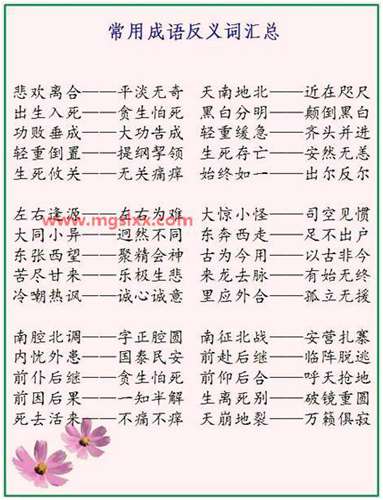 常用成语反义词汇总
悲欢离合——平淡无奇 天南地北——近在咫尺
出生入死——贪生怕死 黑白分明——颠倒黑白
功败垂成——大功告成 轻重缓急——齐头并进
轻重倒置——提纲挈领 生死存亡——安然无恙
生死攸关——无关痛痒 始终如一——出尔反尔
左右逢源——左右为难 大惊小怪——司空见惯
www.mgsixx.com
大同小异——迥然不同 东奔西走——足不出户
东张西望——聚精会神 古为今用——以古非今
苦尽甘来——乐极生悲 来龙去脉——有始无终
冷嘲热讽——诚心诚意 里应外合——孤立无援
南腔北调——字正腔圆 南征北战——安营扎寨
内忧外患——国泰民安 前赴后继——临阵脱逃
前仆后继——贪生怕死 前仰后合——呼天抢地
前因后果——一知半解 生离死别——破镜重圆
死去活来——不痛不痒 天崩地裂——万籁俱寂